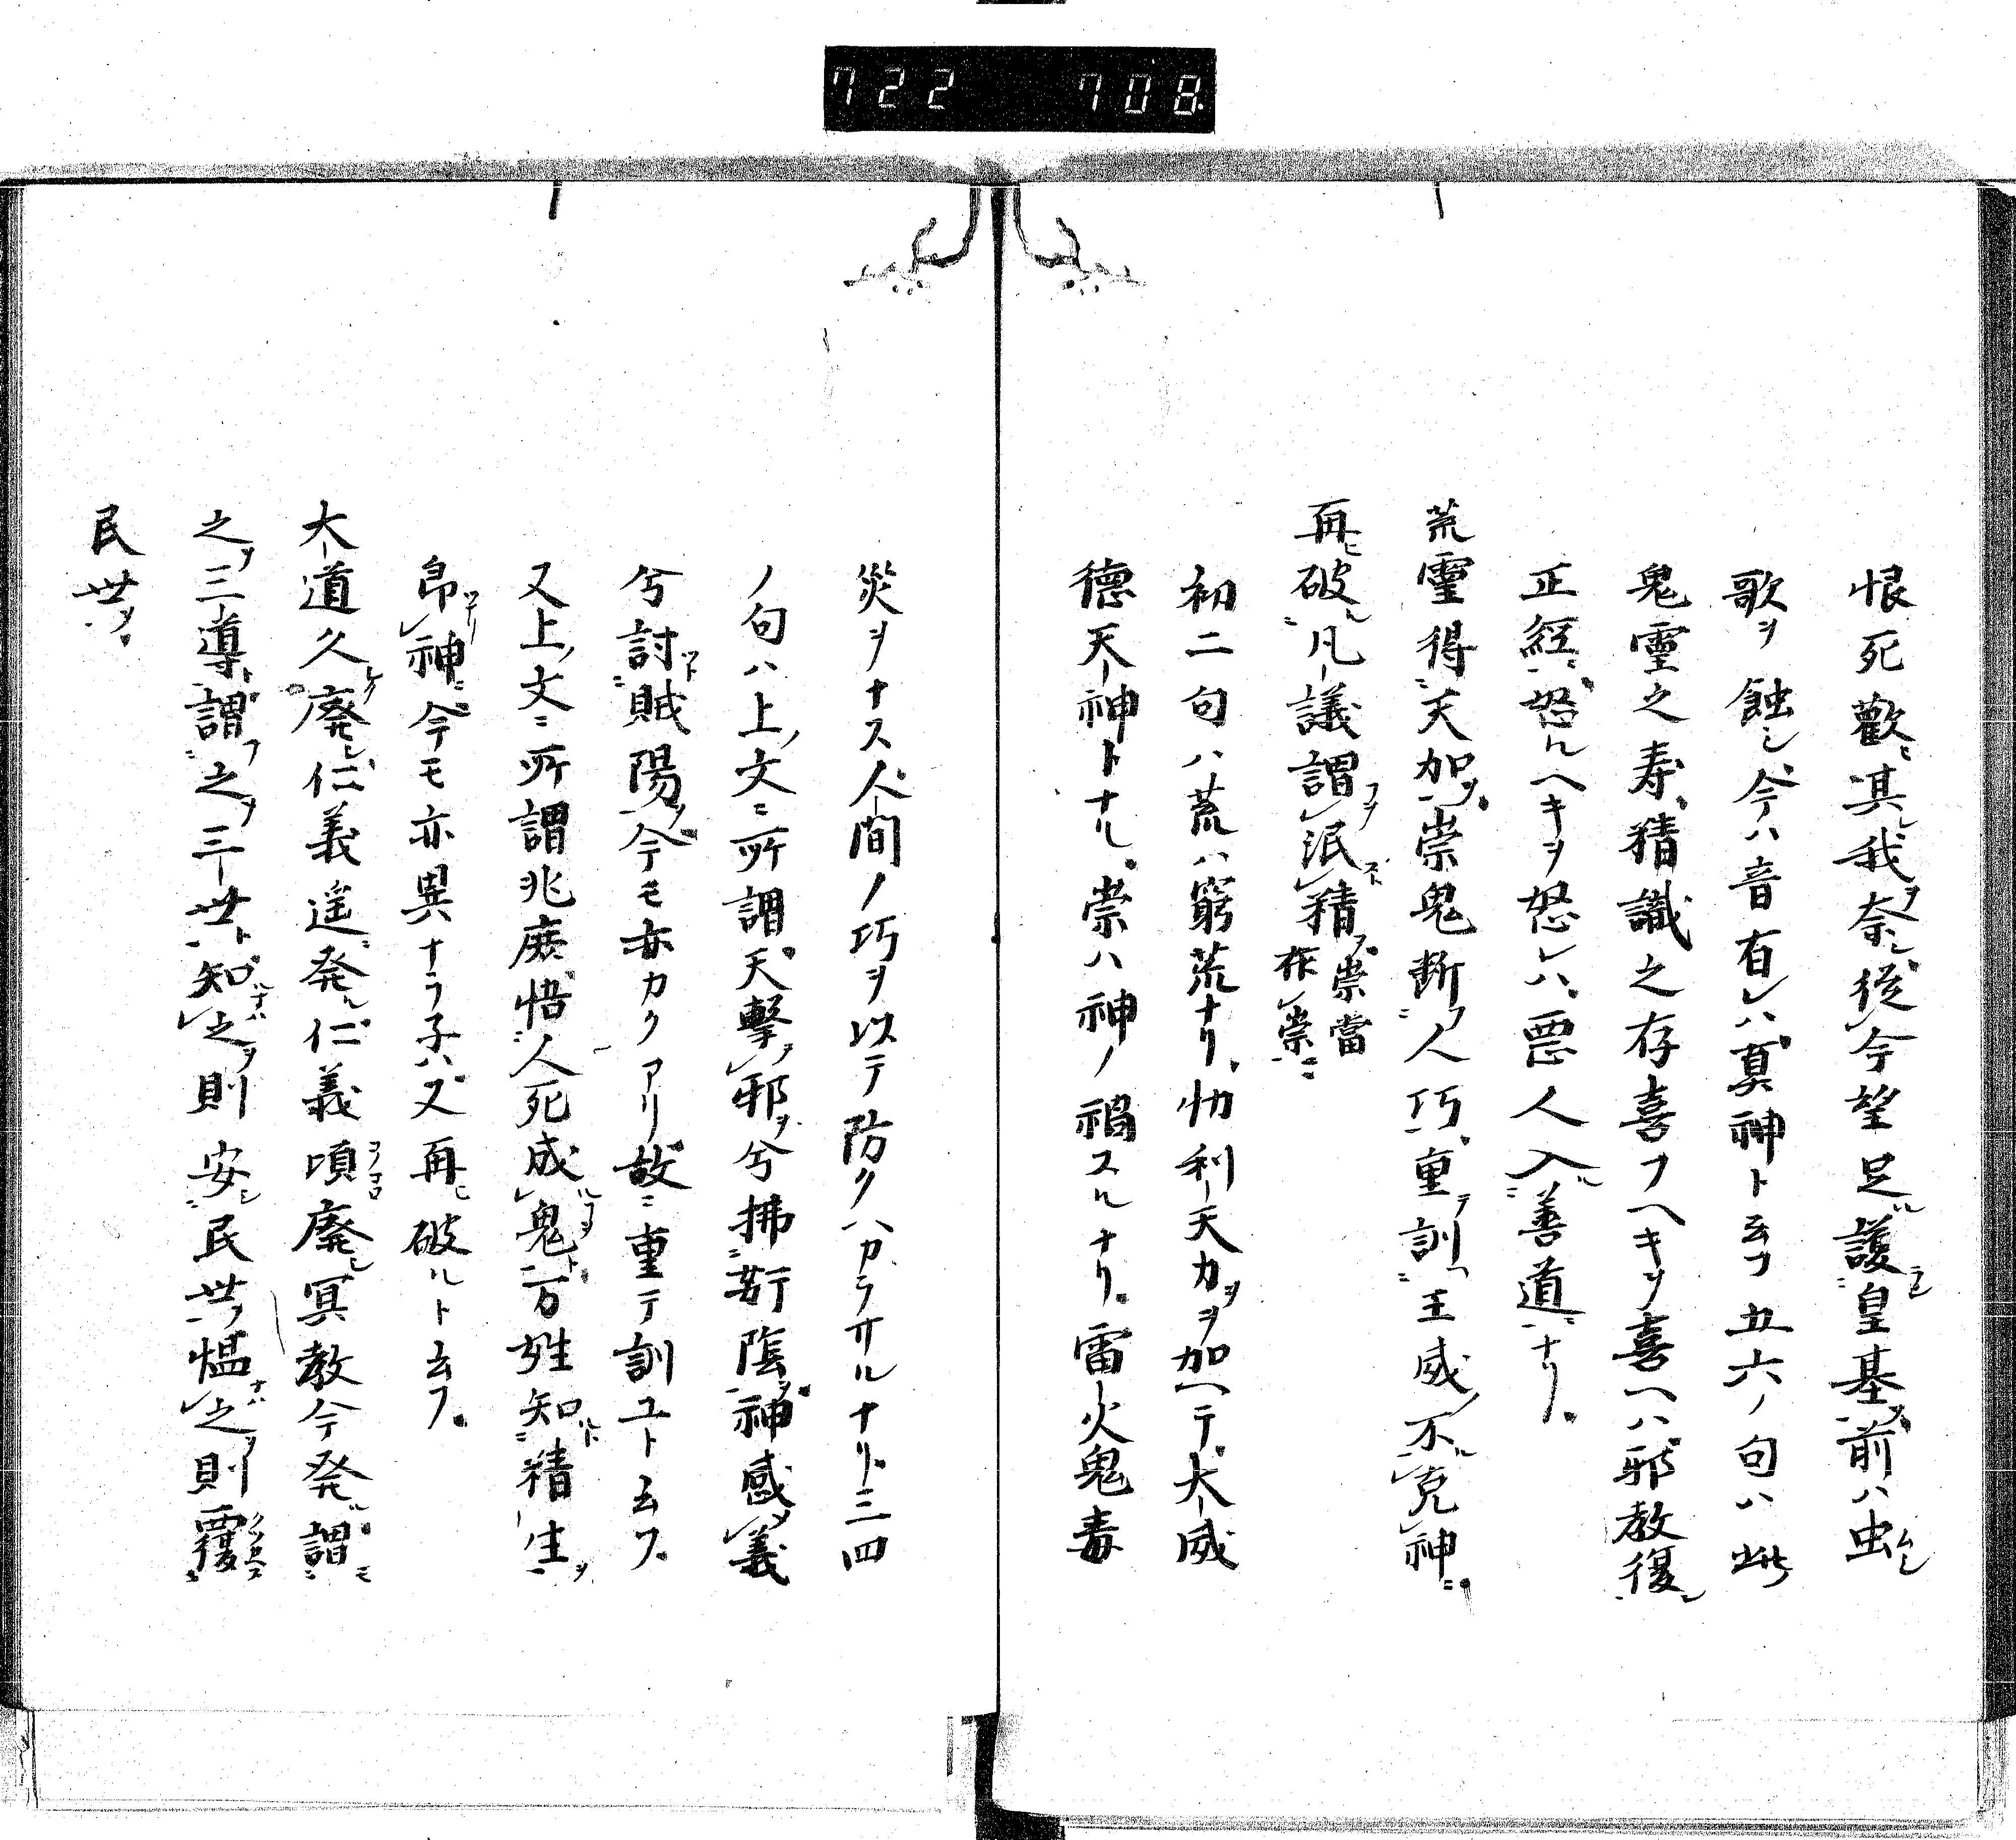 722 708
恨死歡其我奈後今望足護皇基前ハ虫
歌ヲ蝕シ今ハ音有レハ真神ト云フ五六ノ句ハ此
鬼霊之寿精識之存喜フヘキヲ喜ヘハ邪教復
正経怒ルヘキヲ怒レハ悪人入善道ナリ
荒霊得天加崇鬼断人巧重訓王威不克神
再破凡議謂泯精 崇當作祟
初二句ハ荒ハ窮荒ナリ忉利天力ヲ加ヘテ大威
徳天神トナル祟ハ神ノ禍スルナリ雷火鬼毒
災ヲナス人間ノ巧ヲ以テ防クハカラサルナリ三四
ノ句ハ上ノ文ニ所謂天撃邪兮拂姧陰神感義
兮討賊陽今モ亦カクアリ故ニ重テ訓ユト云フ
又上ノ文ニ所謂兆庶悟人死成鬼万姓知精生
即神今モ亦異ナラ子ハ又再破ルト云フ
大道久廃仁義遥発仁義頃廃冥教今発謂
之三導謂之三世知之則安民世愠之則覆
民世